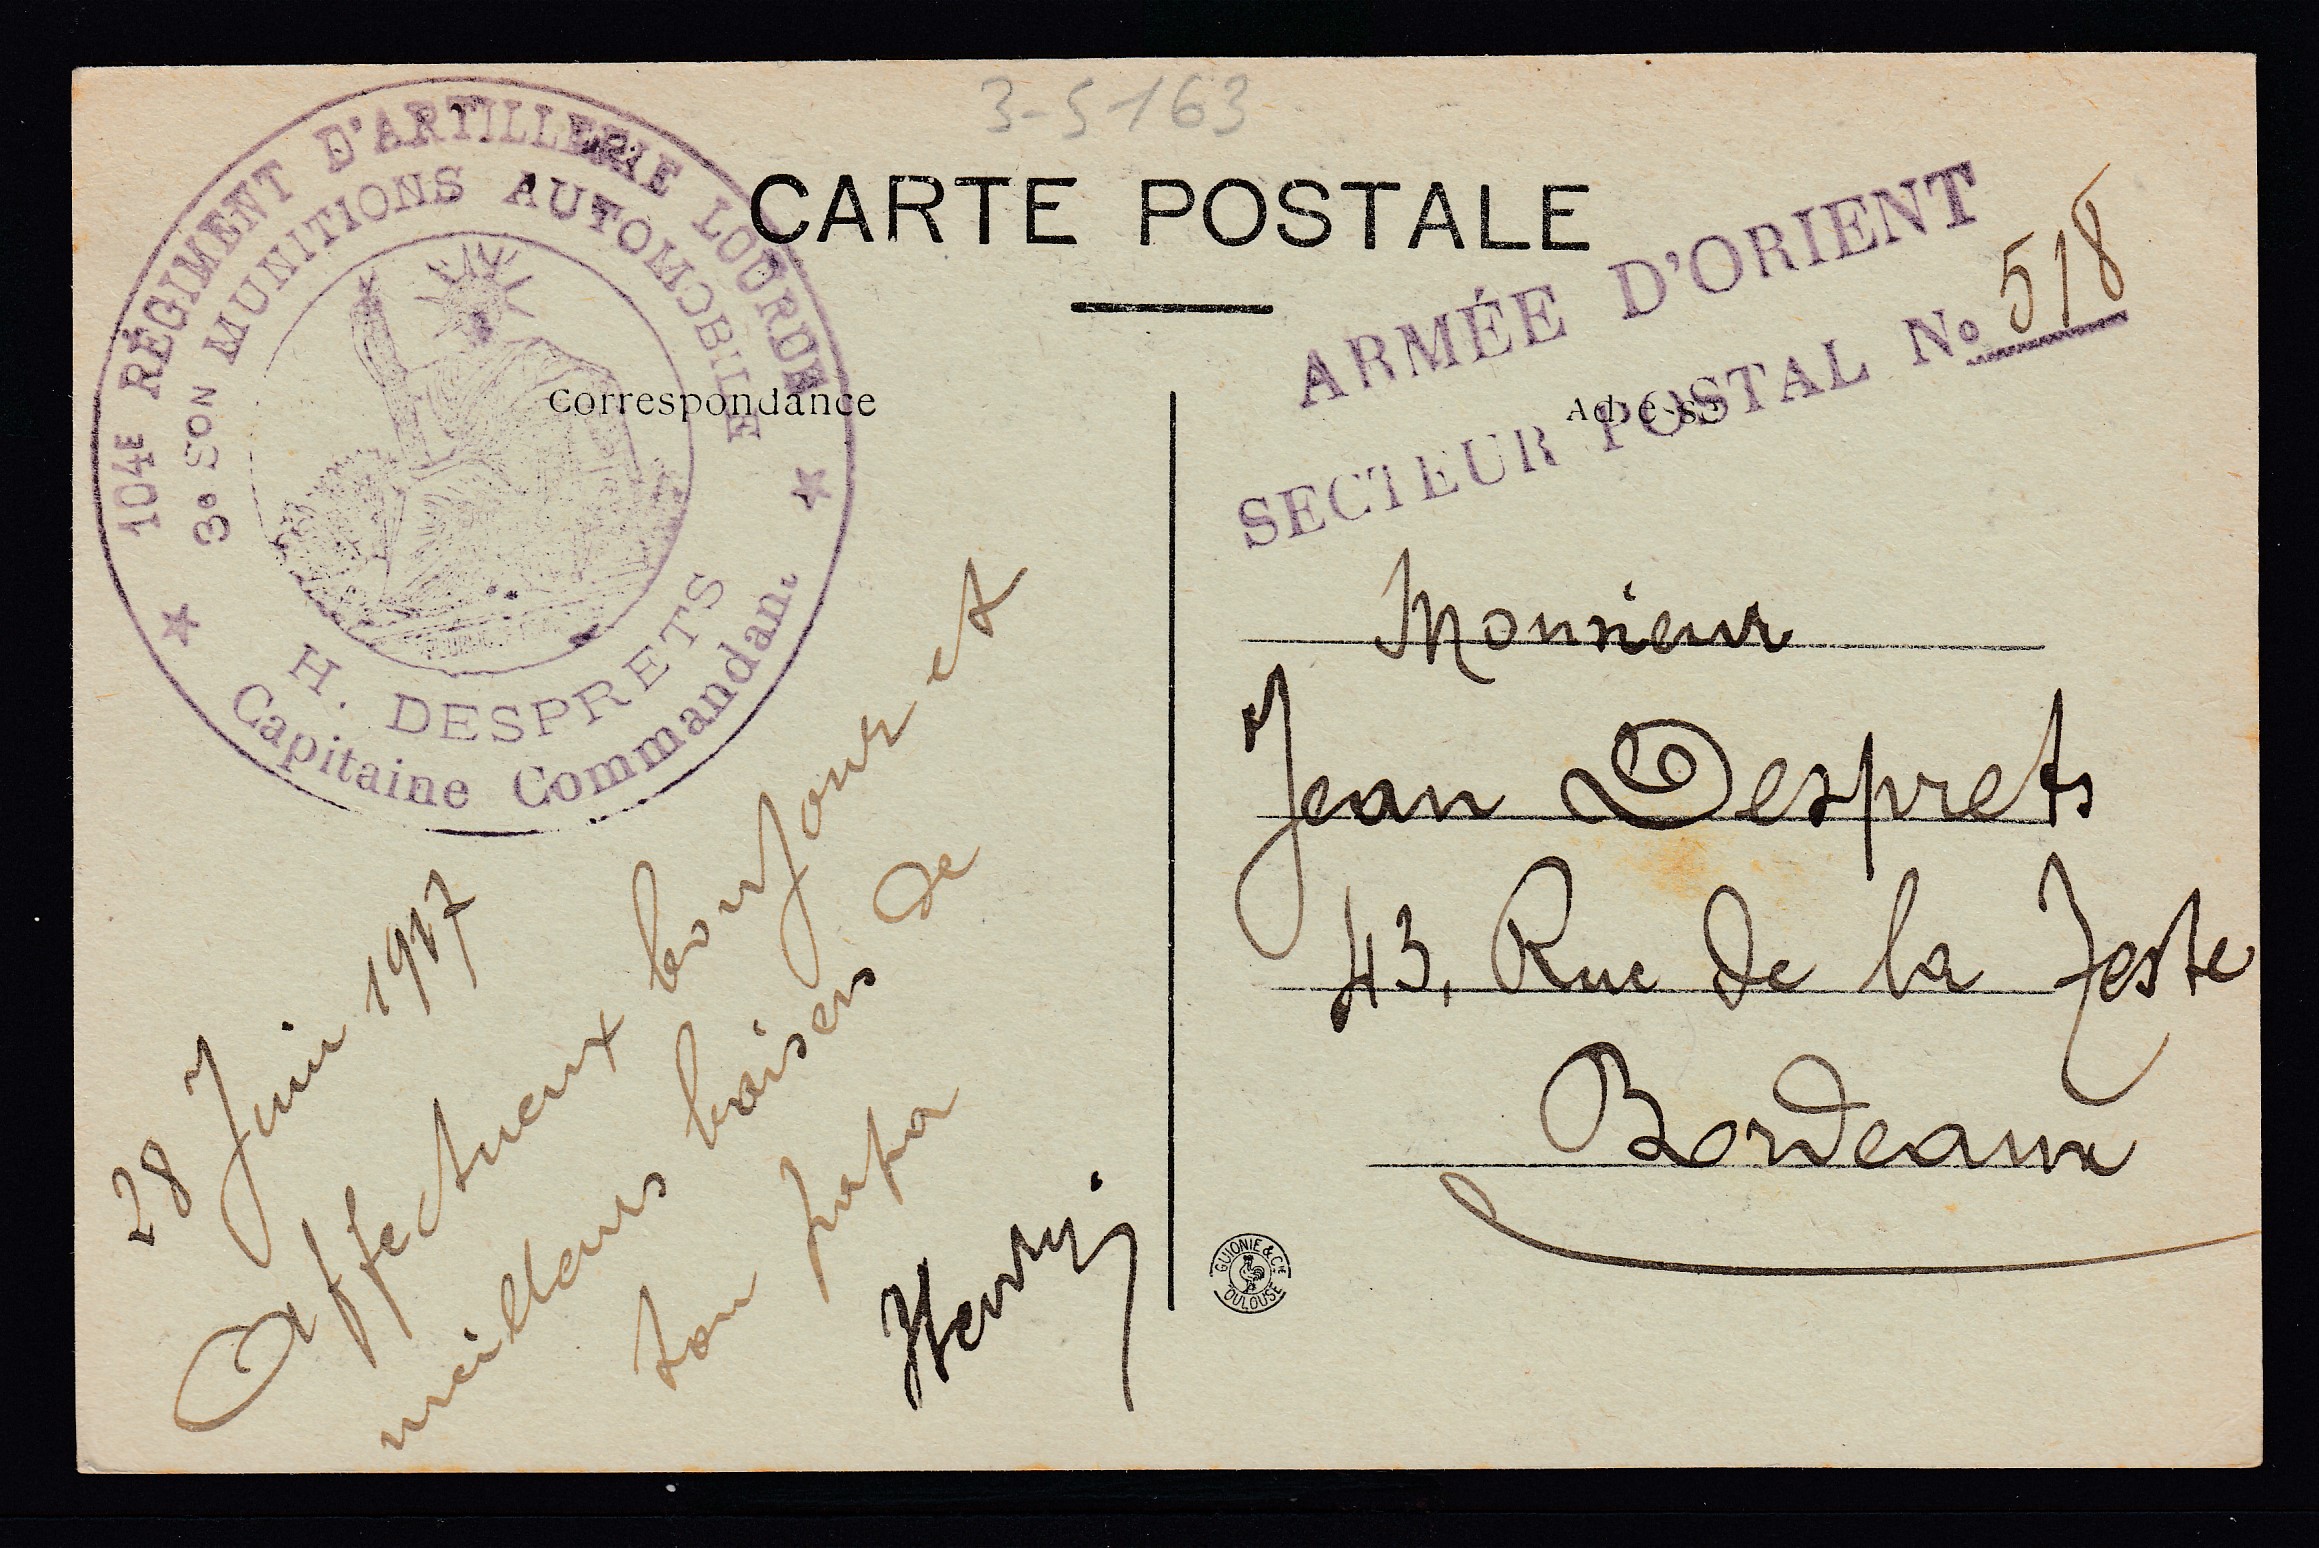 3-5163
CARTE POSTALE
104E RÉGIMENT D'ARTILLERIE LOURDE
3e SON MUNITIONS AUTOMOBILE
H. DESPRETS
Capitaine Commandant
ARMÉE D'ORIENT
SECTEUR POSTAL No 518
Correspondance
Adresse
28 Juin 1917
Affectueux bonjour et
meilleurs baisers de
ton papa
Henry
Monsieur
Jean Desprets
43, Rue de la Teste
Bordeaux
GUIONIE & Cie
TOULOUSE